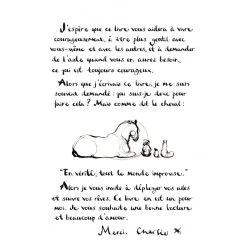 J'espère que ce livre vous aidera à vivre
courageusement, à être plus gentil avec
vous-même et avec les autres, et à demander
de l'aide quand vous en aurez besoin,
ce qui est toujours courageux.
Alors que j'écrivais ce livre, je me suis
souvent demandé : qui suis-je donc pour
faire cela ? Mais comme dit le cheval :
"En vérité, tout le monde improvise."
Alors je vous invite à déployer vos ailes
et suivre vos rêves. Ce livre en est un pour
moi. Je vous souhaite une bonne lecture
et beaucoup d'amour.
Merci. Charlie x